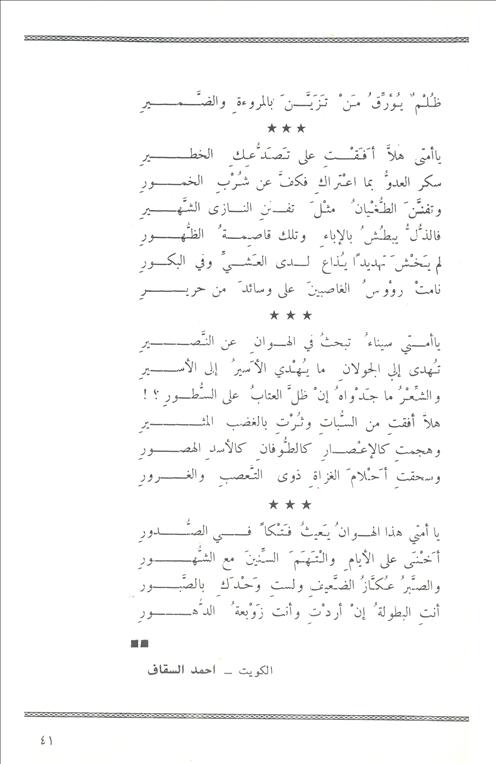 ظُلْمٌ يُؤَرِّقُ مَنْ تَزَيَّنَ بالمروءةِ والضَّميرِ
★★★
ياأمتى هلاَّ أَفَقْتِ على تَصَدُّعِكِ الخطيرِ
سكر العدوُّ بما اعْتراكِ فكفَّ عن شُرْبِ الخمورِ
وتفنَّنَ الطُّغْيانُ مثْلَ تفننِ النازى الشَّهيرِ
فالذُّلُّ يبطشُ بالإباءِ وتلك قاصمةُ الظُّهورِ
لم يَخْشَ تهديدًا يُذاع لدى العَشىِّ وفي البكورِ
نامتْ رؤوسُ الغاصبينَ على وسائدَ من حريرِ
★★★
ياأمتي سيناءُ تبحثُ في الهوانِ عن النَّصيرِ
تُهدى إلى الجولانِ ما يُهْدي الأسيرُ إلى الأسيرِ
والشِّعْرُ ما جَدْواهُ إنْ ظلَّ العتابُ على السُّطورِ ؟!
هلاَّ أفقتِ من السُّباتِ وثُرْتِ بالغضب المثيرِ
وهجمتِ كالإعْصارِ كالطُّوفانِ كالأسدِ الهصورِ
وسحقتِ أحْلامَ الغزاةِ ذوى التَّعصبِ والغرورِ
★★★
يا أمتي هذا الهوانُ يَعيثُ فَتْكاً في الصُّدورِ
أخْنَى على الأيامِ والْتَهَمَ السِّنينَ مع الشُّهورِ
والصَّبرُ عُكَّازُ الضَّعيفِ ولستِ وَحْدَكِ بالصَّبورِ
أنتِ البطولةُ إنْ أردْتِ وأنتِ زَوْبعةُ الدُّهورِ
الكويت ــ احمد السقاف
٤١